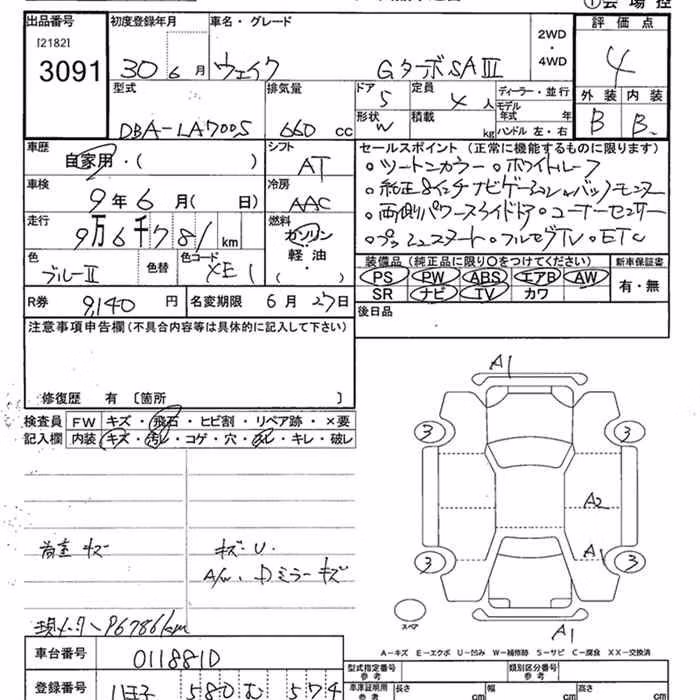 ①会場控
出品番号 初度登録年月 車名・グレード 評価点
[2182]
3091
30 6月 ウェイク GターボSAⅢ 2WD・4WD 4
型式 排気量 ドア 5 定員 4人 ディーラー・並行 外装 内装
モデル年式 年
DBA-LA700S 660cc 形状 W 積載 kg ハンドル 左・右 B B
車歴 シフト セールスポイント(正常に機能するものに限ります)
自家用・( ) AT
○ツートンカラー ○ホワイトルーフ
車検 冷房
9年6月( 日) AAC
○純正8インチナビゲーション ○バックモニター
走行 燃料
9万6千781km ガソリン・軽油・( )
○両側パワースライドドア ○コーナーセンサー
○プッシュスタート ○フルセグTV ○ETC
色 色替 色コード
ブルーⅡ XE1
装備品(純正品に限り○をつけてください) 新車保証書
PS PW ABS エアB AW 有・無
SR ナビ TV カワ
R券 9,140円 名変期限 6月27日
後日品
注意事項申告欄(不具合内容等は具体的に記入して下さい)
修復歴 有 [箇所 ]
検査員記入欄 FW キズ・飛石・ヒビ割・リペア跡・×要
内装 キズ・汚レ・コゲ・穴・スレ・キレ・破レ
A1
3 3
A2
A1
3 3
スペア
A1
キズ キズ・U.
A/W、Dミラーキズ
現メーター 96786km
A-キズ E-エクボ U-凹み W-補修跡 S-サビ C-腐食 XX-交換済
車台番号 0118810
型式指定番号 参考 類別区分番号 参考
登録番号 八王子 580 む 574
車庫証明用 参考 長さ cm 幅 cm 高さ cm